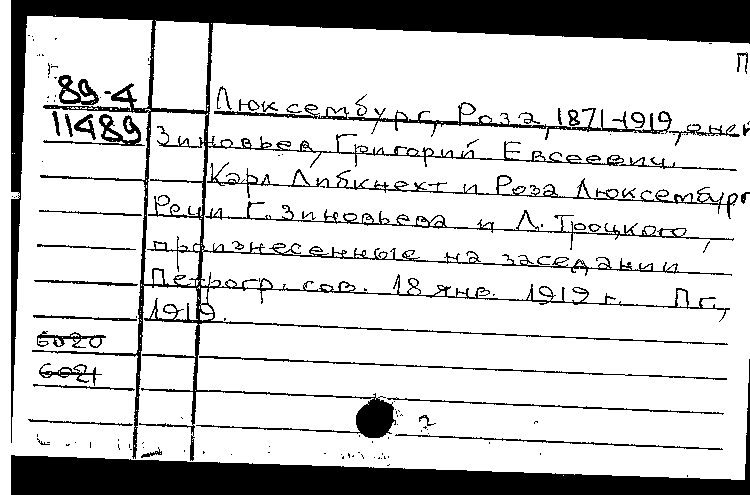 П
89-4
11489
Люксембург, Роза, 1871-1919, о ней
Зиновьев, Григорий Евсеевич.
Карл Либкнехт и Роза Люксембург
Речи Г. Зиновьева и Л. Троцкого,
произнесенные на заседании
Петрогр. сов. 18 янв. 1919 г. Пг.,
1919.
6020
6021
2